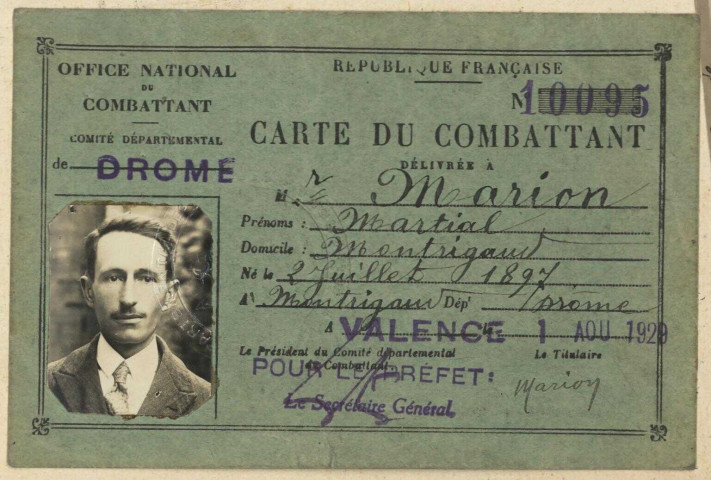 OFFICE NATIONAL
DU
COMBATTANT
COMITÉ DÉPARTEMENTAL
de DROME
RÉPUBLIQUE FRANÇAISE
N° 10095
CARTE DU COMBATTANT
DÉLIVRÉE A
M r Marion
Prénoms : Martial
Domicile : Montrigaud
Né le 2 Juillet 1897
A Montrigaud Dépt Drôme
A VALENCE le 1 AOU 1929
Le Président du Comité départemental
du Combattant
Le Titulaire
POUR LE PRÉFET:
Le Secrétaire Général,
Marion